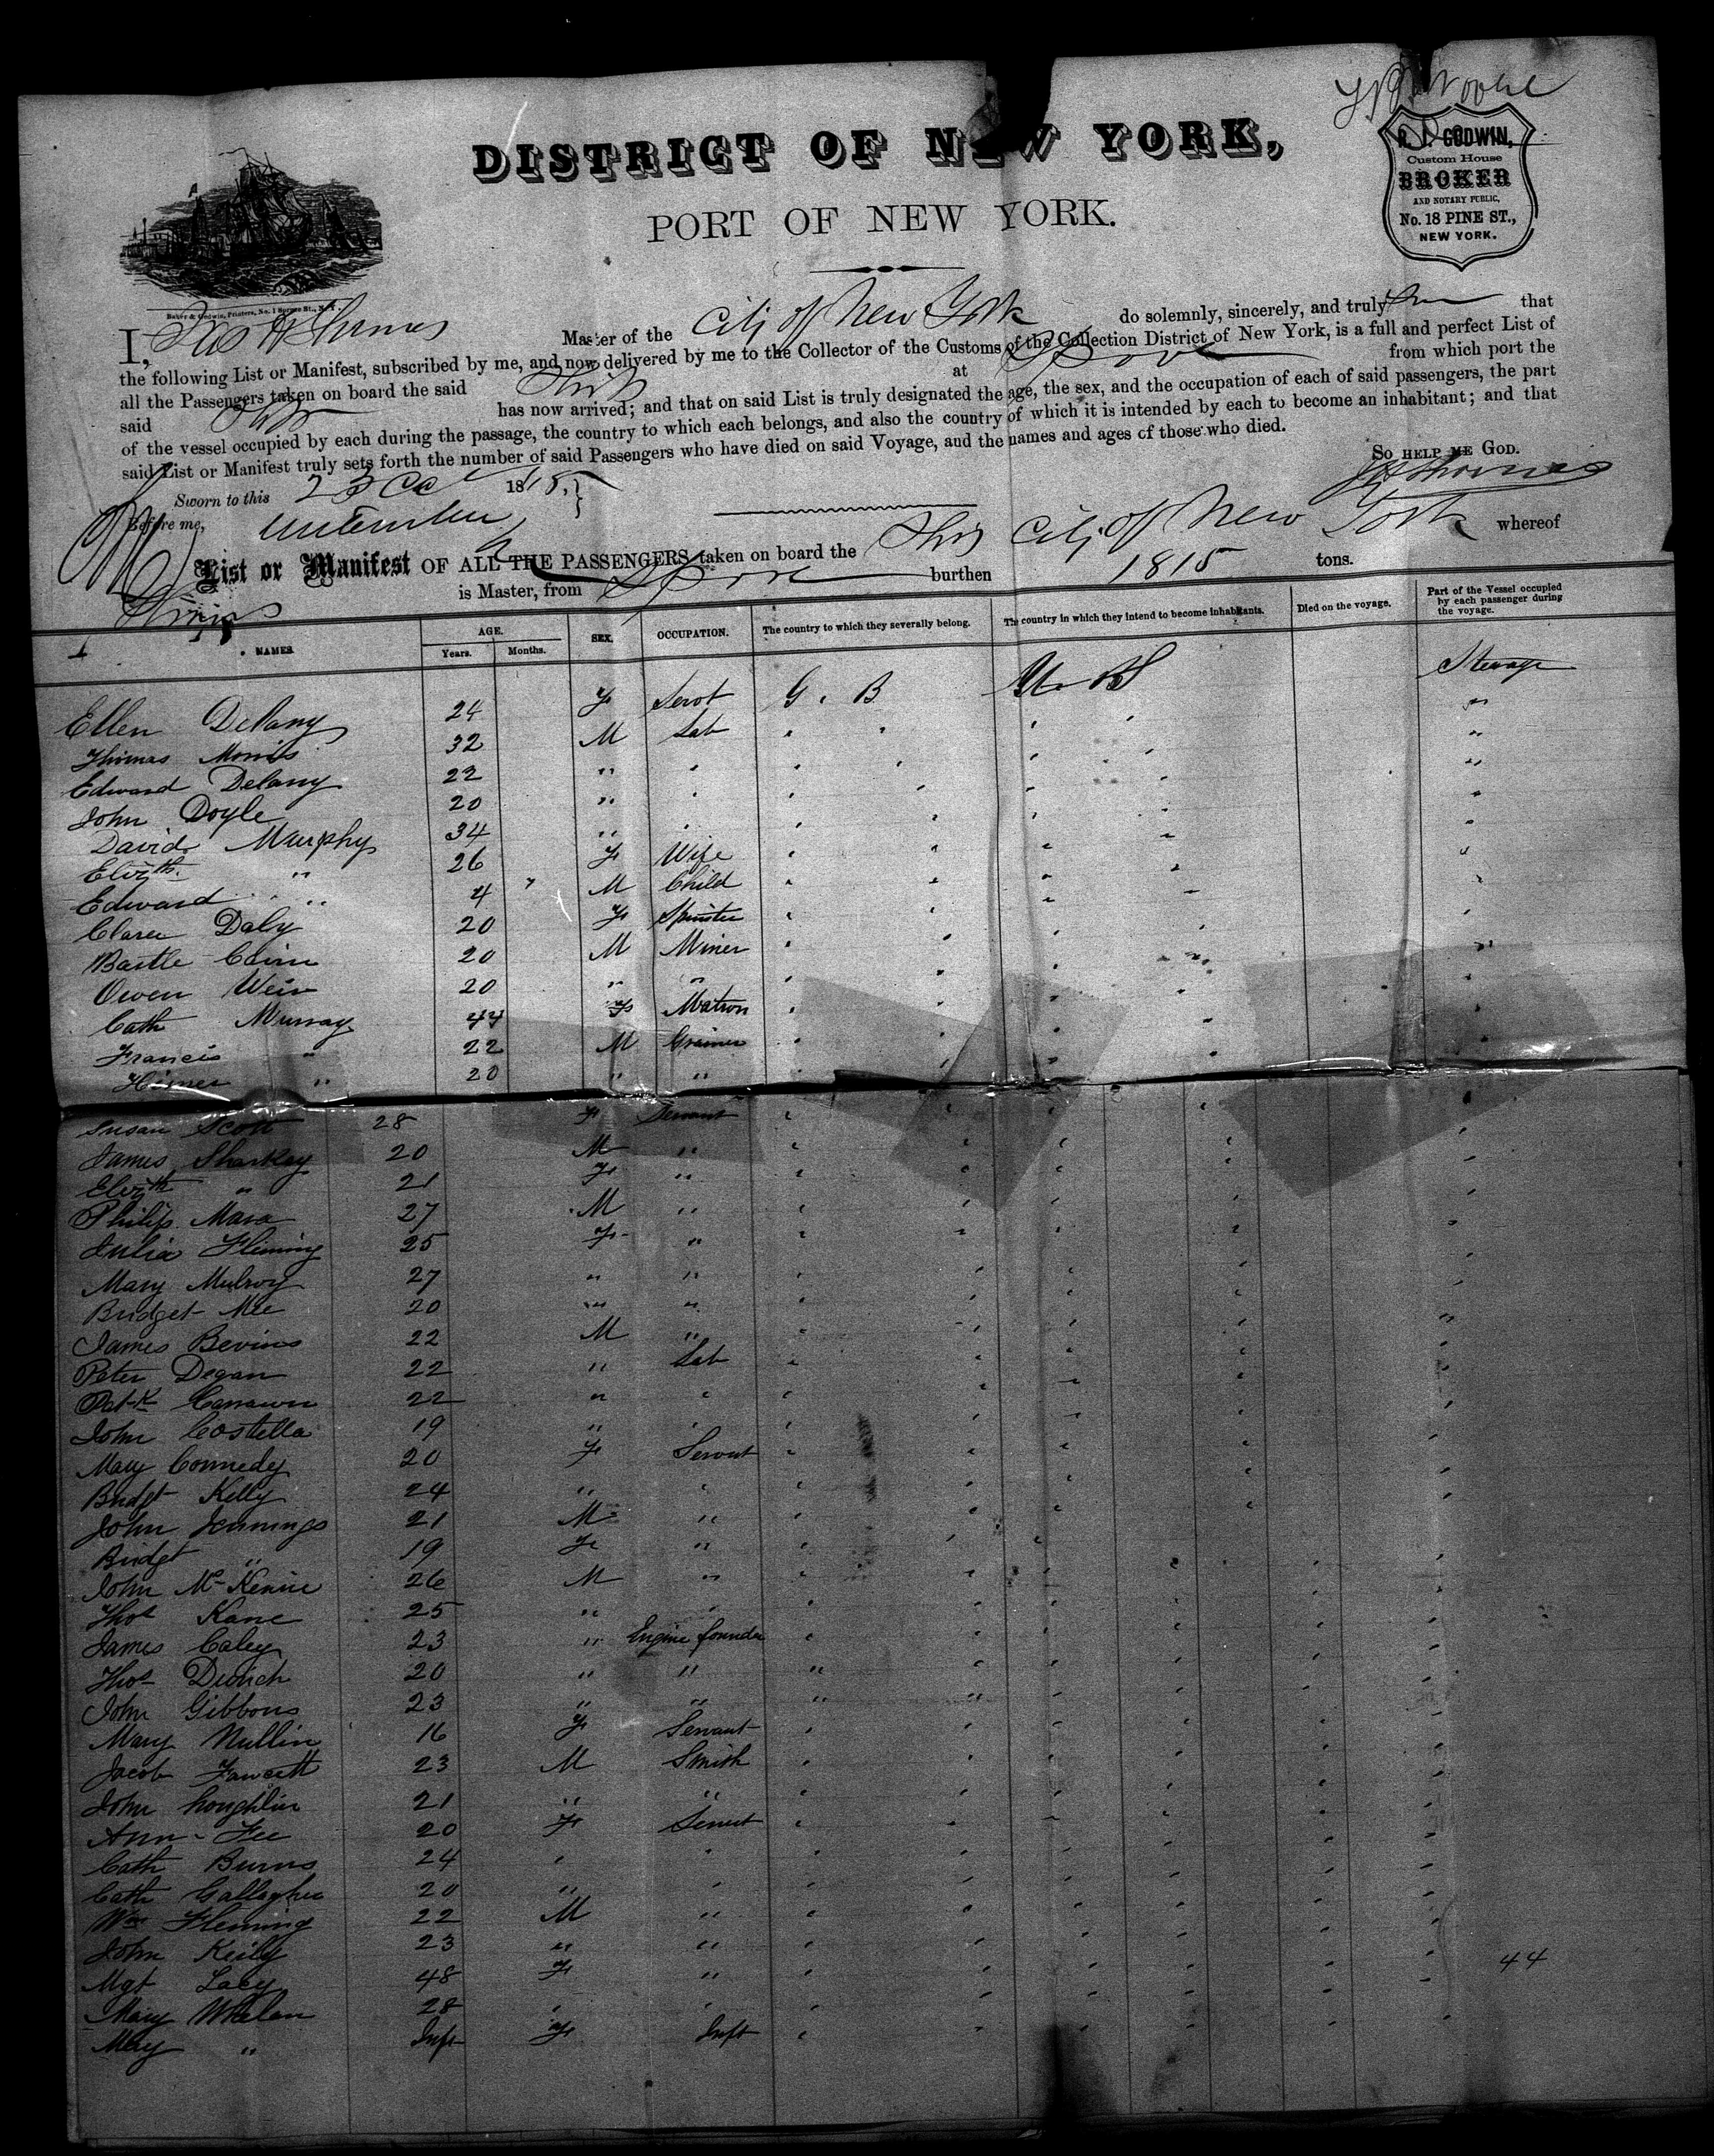 R. J. GODWIN,
Custom House
BROKER
AND NOTARY PUBLIC,
No. 18 PINE ST.,
NEW YORK.
DISTRICT OF NEW YORK,
PORT OF NEW YORK.
Baker & Godwin, Printers, No. 1 Spruce St., N.Y.
I, Master of the City of New York do solemnly, sincerely, and truly that
the following List or Manifest, subscribed by me, and now delivered by me to the Collector of the Customs of the Collection District of New York, is a full and perfect List of
all the Passengers taken on board the said Ship at from which port the
said Ship has now arrived; and that on said List is truly designated the age, the sex, and the occupation of each of said passengers, the part
of the vessel occupied by each during the passage, the country to which each belongs, and also the country of which it is intended by each to become an inhabitant; and that
said List or Manifest truly sets forth the number of said Passengers who have died on said Voyage, and the names and ages of those who died.
So help me God.
Sworn to this 23 Oct 18
Before me,
List or Manifest OF ALL THE PASSENGERS taken on board the Ship City of New York whereof
is Master, from burthen 1815 tons.
NAMES. AGE. Years. Months. SEX. OCCUPATION. The country to which they severally belong. The country in which they intend to become inhabitants. Died on the voyage. Part of the Vessel occupied by each passenger during the voyage.
Ellen Delany 24 F Servt G. B U. S Steerage
Thomas Morris 32 M Lab " " "
Edward Delany 22 " " " " "
John Doyle 20 " " " " "
David Murphy 34 " " " " "
Elizth " 26 F Wife " " "
Edward " 4 " M Child " " "
Clara Daly 20 F Spinster " " "
Bastle 20 M Miner " " "
Owen Weir 20 " " " " "
Cath Murray 44 F Matron " " "
Francis " 22 M " " "
" 20 " " " " "
Susan Scott 28 F Servant " " "
James Sharkey 20 M " " " "
Elizth " 21 F " " " "
Philip Mara 27 M " " " "
Julia Fleming 25 F " " " "
Mary Mulroy 27 " " " " "
Bridget Mee 20 " " " " "
James Bevins 22 M " " " "
Peter Degan 22 " Lab " " "
Patk 22 " " " " "
John Costella 19 " " " " "
Mary Connedy 20 F Servnt " " "
Bridgt Kelly 24 " " " " "
John Jennings 21 M " " " "
Bridgt " 19 F " " " "
John 26 M " " " "
Thos Kane 25 " " " " "
James Caley 23 " Engine founder " " "
Thos 20 " " " " "
John Gibbons 23 " " " " "
Mary Nullin 16 F Servant " " "
Jacob Fawcett 23 M Smith " " "
John Loughlin 21 " " " " "
Ann Fee 20 F Servnt " " "
Cath Burns 24 " " " " "
Cath Gallagher 20 " " " " "
Wm Fleming 22 M " " " "
John Keily 23 " " " " "
Mgt Lacy 48 F " " " "
44
Mary Whelan 28 " " " " "
Mary " Inft F Inft " " "